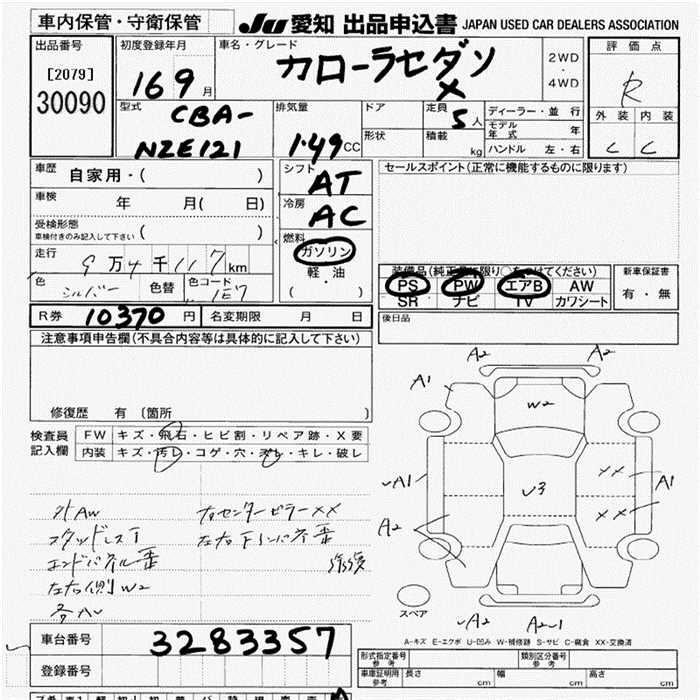 車内保管・守衛保管
JU 愛知 出品申込書 JAPAN USED CAR DEALERS ASSOCIATION
出品番号
[2079]
30090
初度登録年月
16 9 月
車名・グレード
カローラセダン
X
2WD
・
4WD
評価点
R
外装 内装
C C
型式
CBA-
NZE121
排気量
1.49 CC
ドア
形状
定員
5 人
積載
kg
ディーラー・並行
モデル年式 年
ハンドル 左・右
車歴
自家用・( )
車検
年 月( 日)
受検形態
車検付きのみ記入して下さい ( )
走行
9万4千117 km
色
シルバー
色替
色コード
1E7
シフト
AT
冷房
AC
燃料
ガソリン
軽・油
( ・ )
セールスポイント(正常に機能するものに限ります)
装備品(純正品に限り○をつけてください)
PS PW エアB AW
SR ナビ TV カワシート
新車保証書
有・無
R券 10370 円
名変期限 月 日
後日品
注意事項申告欄(不具合内容等は具体的に記入して下さい)
修復歴 有 [箇所 ]
検査員
記入欄
FW キズ・飛石・ヒビ割・リペア跡・X要
内装 キズ・汚レ・コゲ・穴・スレ・キレ・破レ
外AW
スタッドレスT
エンドパネル歪
左右側W2
各AU
右センターピラーXX
左右下インパネ歪
A2 A2
A1
W2
A1
U3
XX
XX
A1
A2
スペア
A2 A2-1
A-キズ E-エクボ U-凹み W-補修跡 S-サビ C-腐食 XX-交換済
車台番号 3283357
登録番号
形式指定番号 参考
類別区分番号 参考
車庫証明用 参考
長さ cm 幅 cm 高さ cm